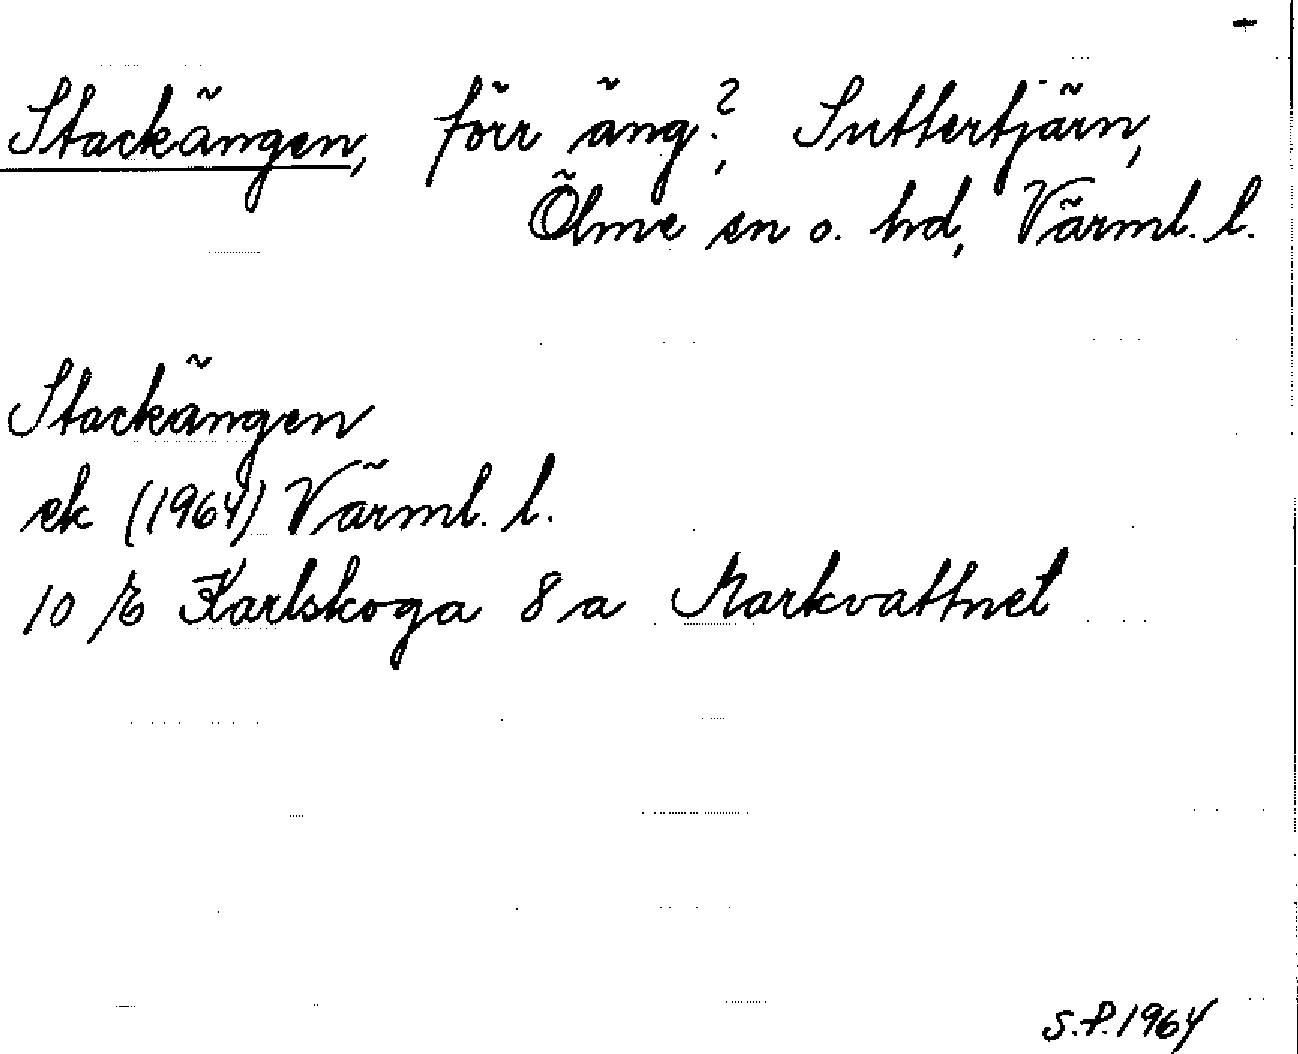 Stackängen, förr äng?, Suttertjärn,
Ölme sn o. hd, Värml. l.
Stackängen
ek (1964) Värml. l.
10 E Karlskoga 8 a Markvattnet
S.P. 1964